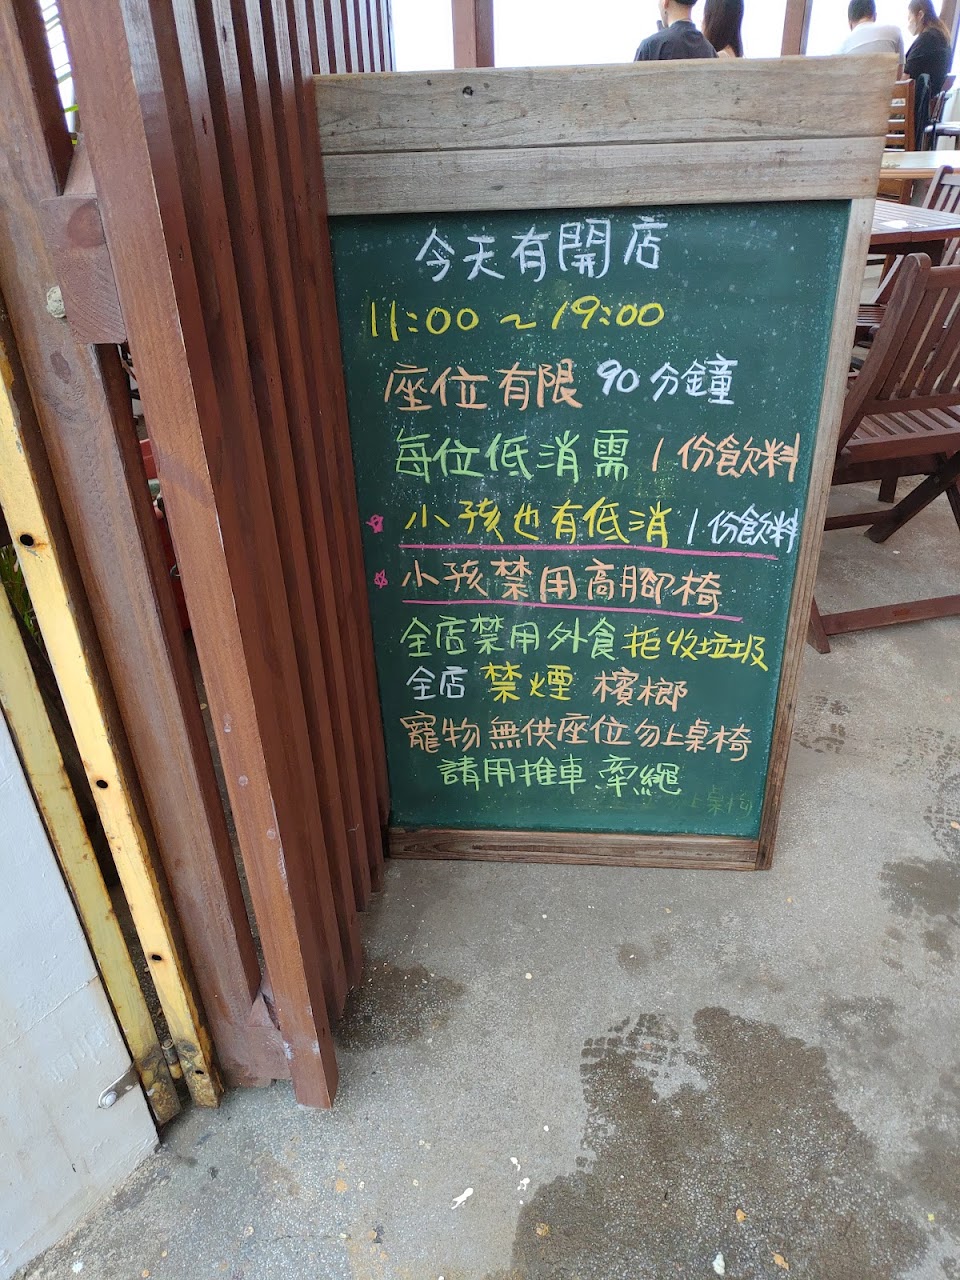 今天有開店
11:00 ~ 19:00
座位有限 90 分鐘
每位低消需 1 份飲料
小孩也有低消 1 份飲料
小孩禁用高腳椅
全店禁用外食 拒收垃圾
全店 禁煙 檳榔
寵物無供座位勿上桌椅
請用推車 牽繩
上桌椅